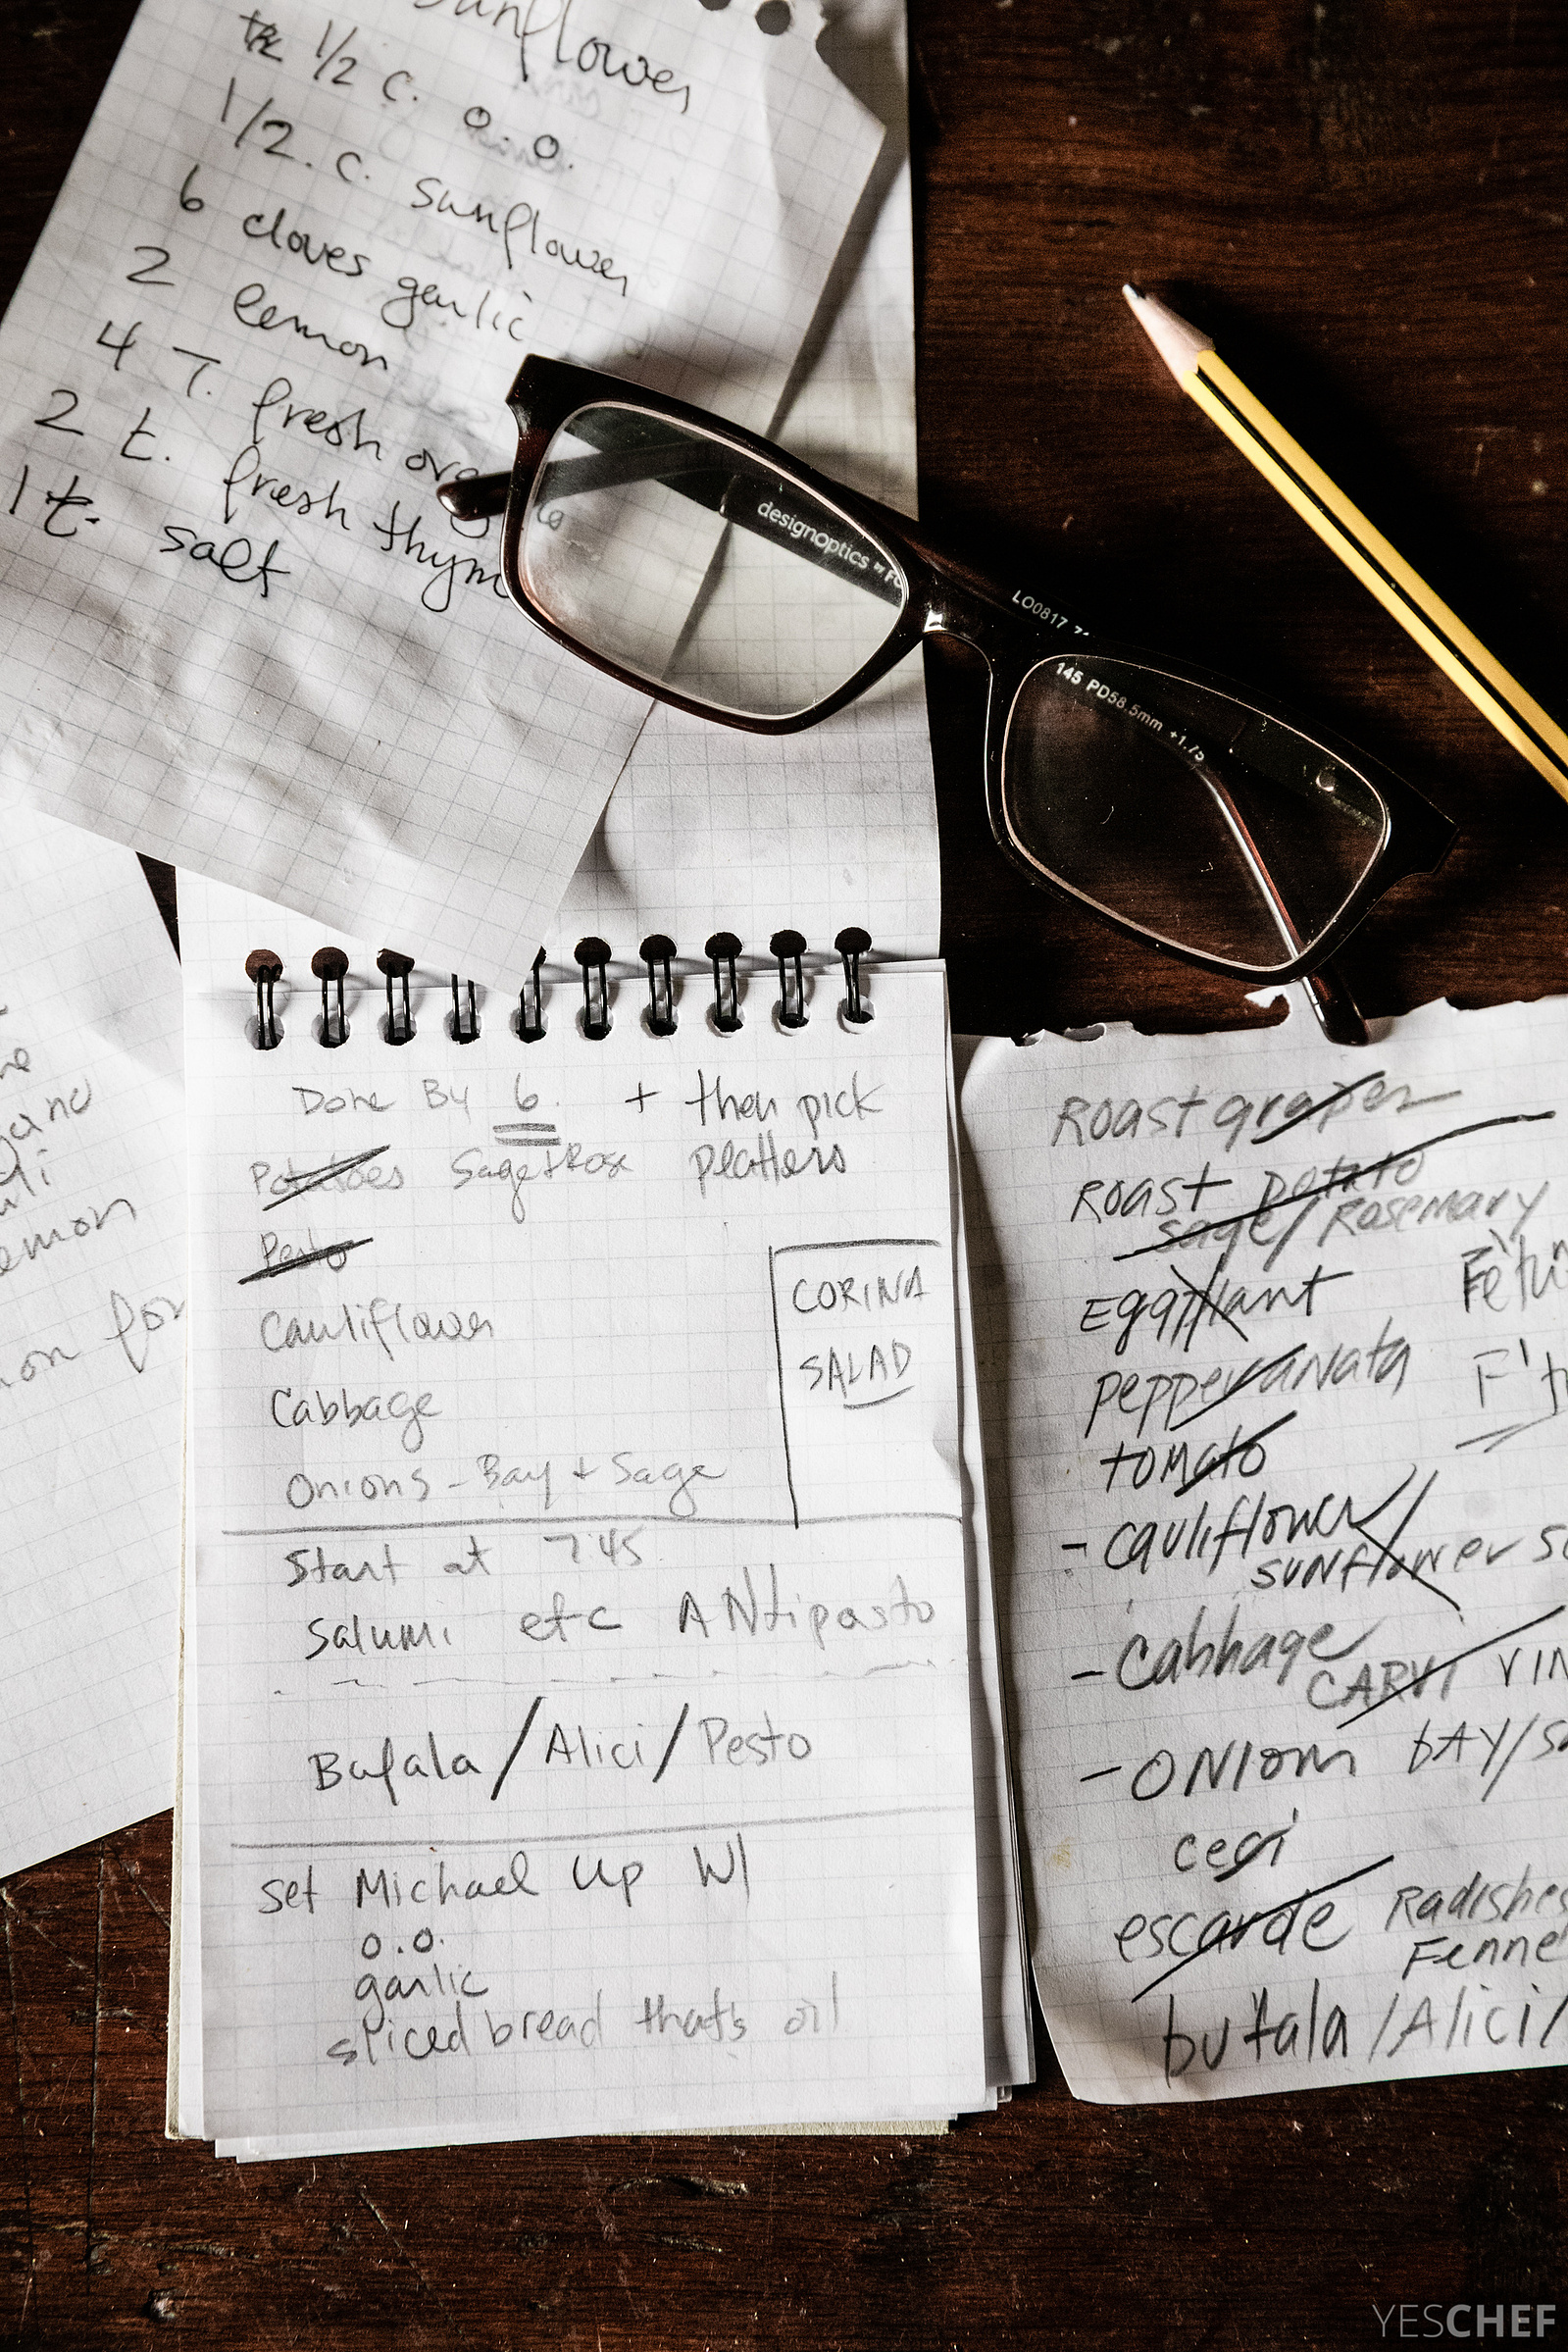 Sunflower
1/2 c. o.o.
1/2. c. sunflower
6 cloves garlic
2 lemon
4 T. fresh
2 t. fresh thym
1 t. salt
designoptics
LO0817
145 PD58.5mm +1.75
emon
on for
Done By 6. + then pick
Potatoes Sage+Rose platters
Pesto
Cauliflower
Cabbage
Onions - Bay + Sage
CORINA
SALAD
Start at 7 45
Salumi etc ANtipasto
Bufala / Alici / Pesto
set Michael up W/
o.o.
garlic
sliced bread that's oil
Roast grapes
Roast potato
sage / Rosemary
Eggplant
pepperanata
tomato
- cauliflower
sunflower
- Cabbage
CARVI VIN
- ONION bAY/
ceci
escarole Radishes
Fennel
bufala / Alici /
YESCHEF